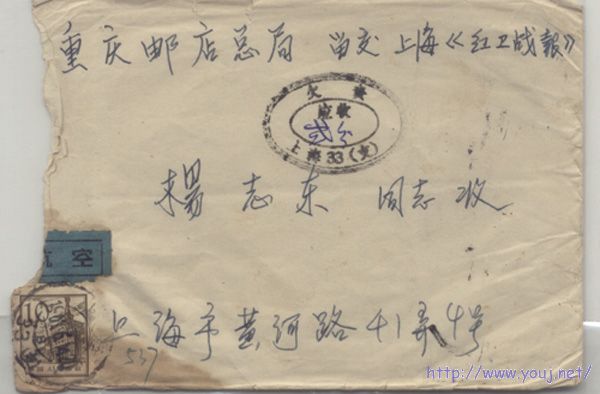 重庆邮店总局 留交 上海《红卫战報》
欠 资
应收
贰分
上海33(支)
楊志东 同志收
航空
10
上海市黄河路41弄4号
537
http://www.youj.net/